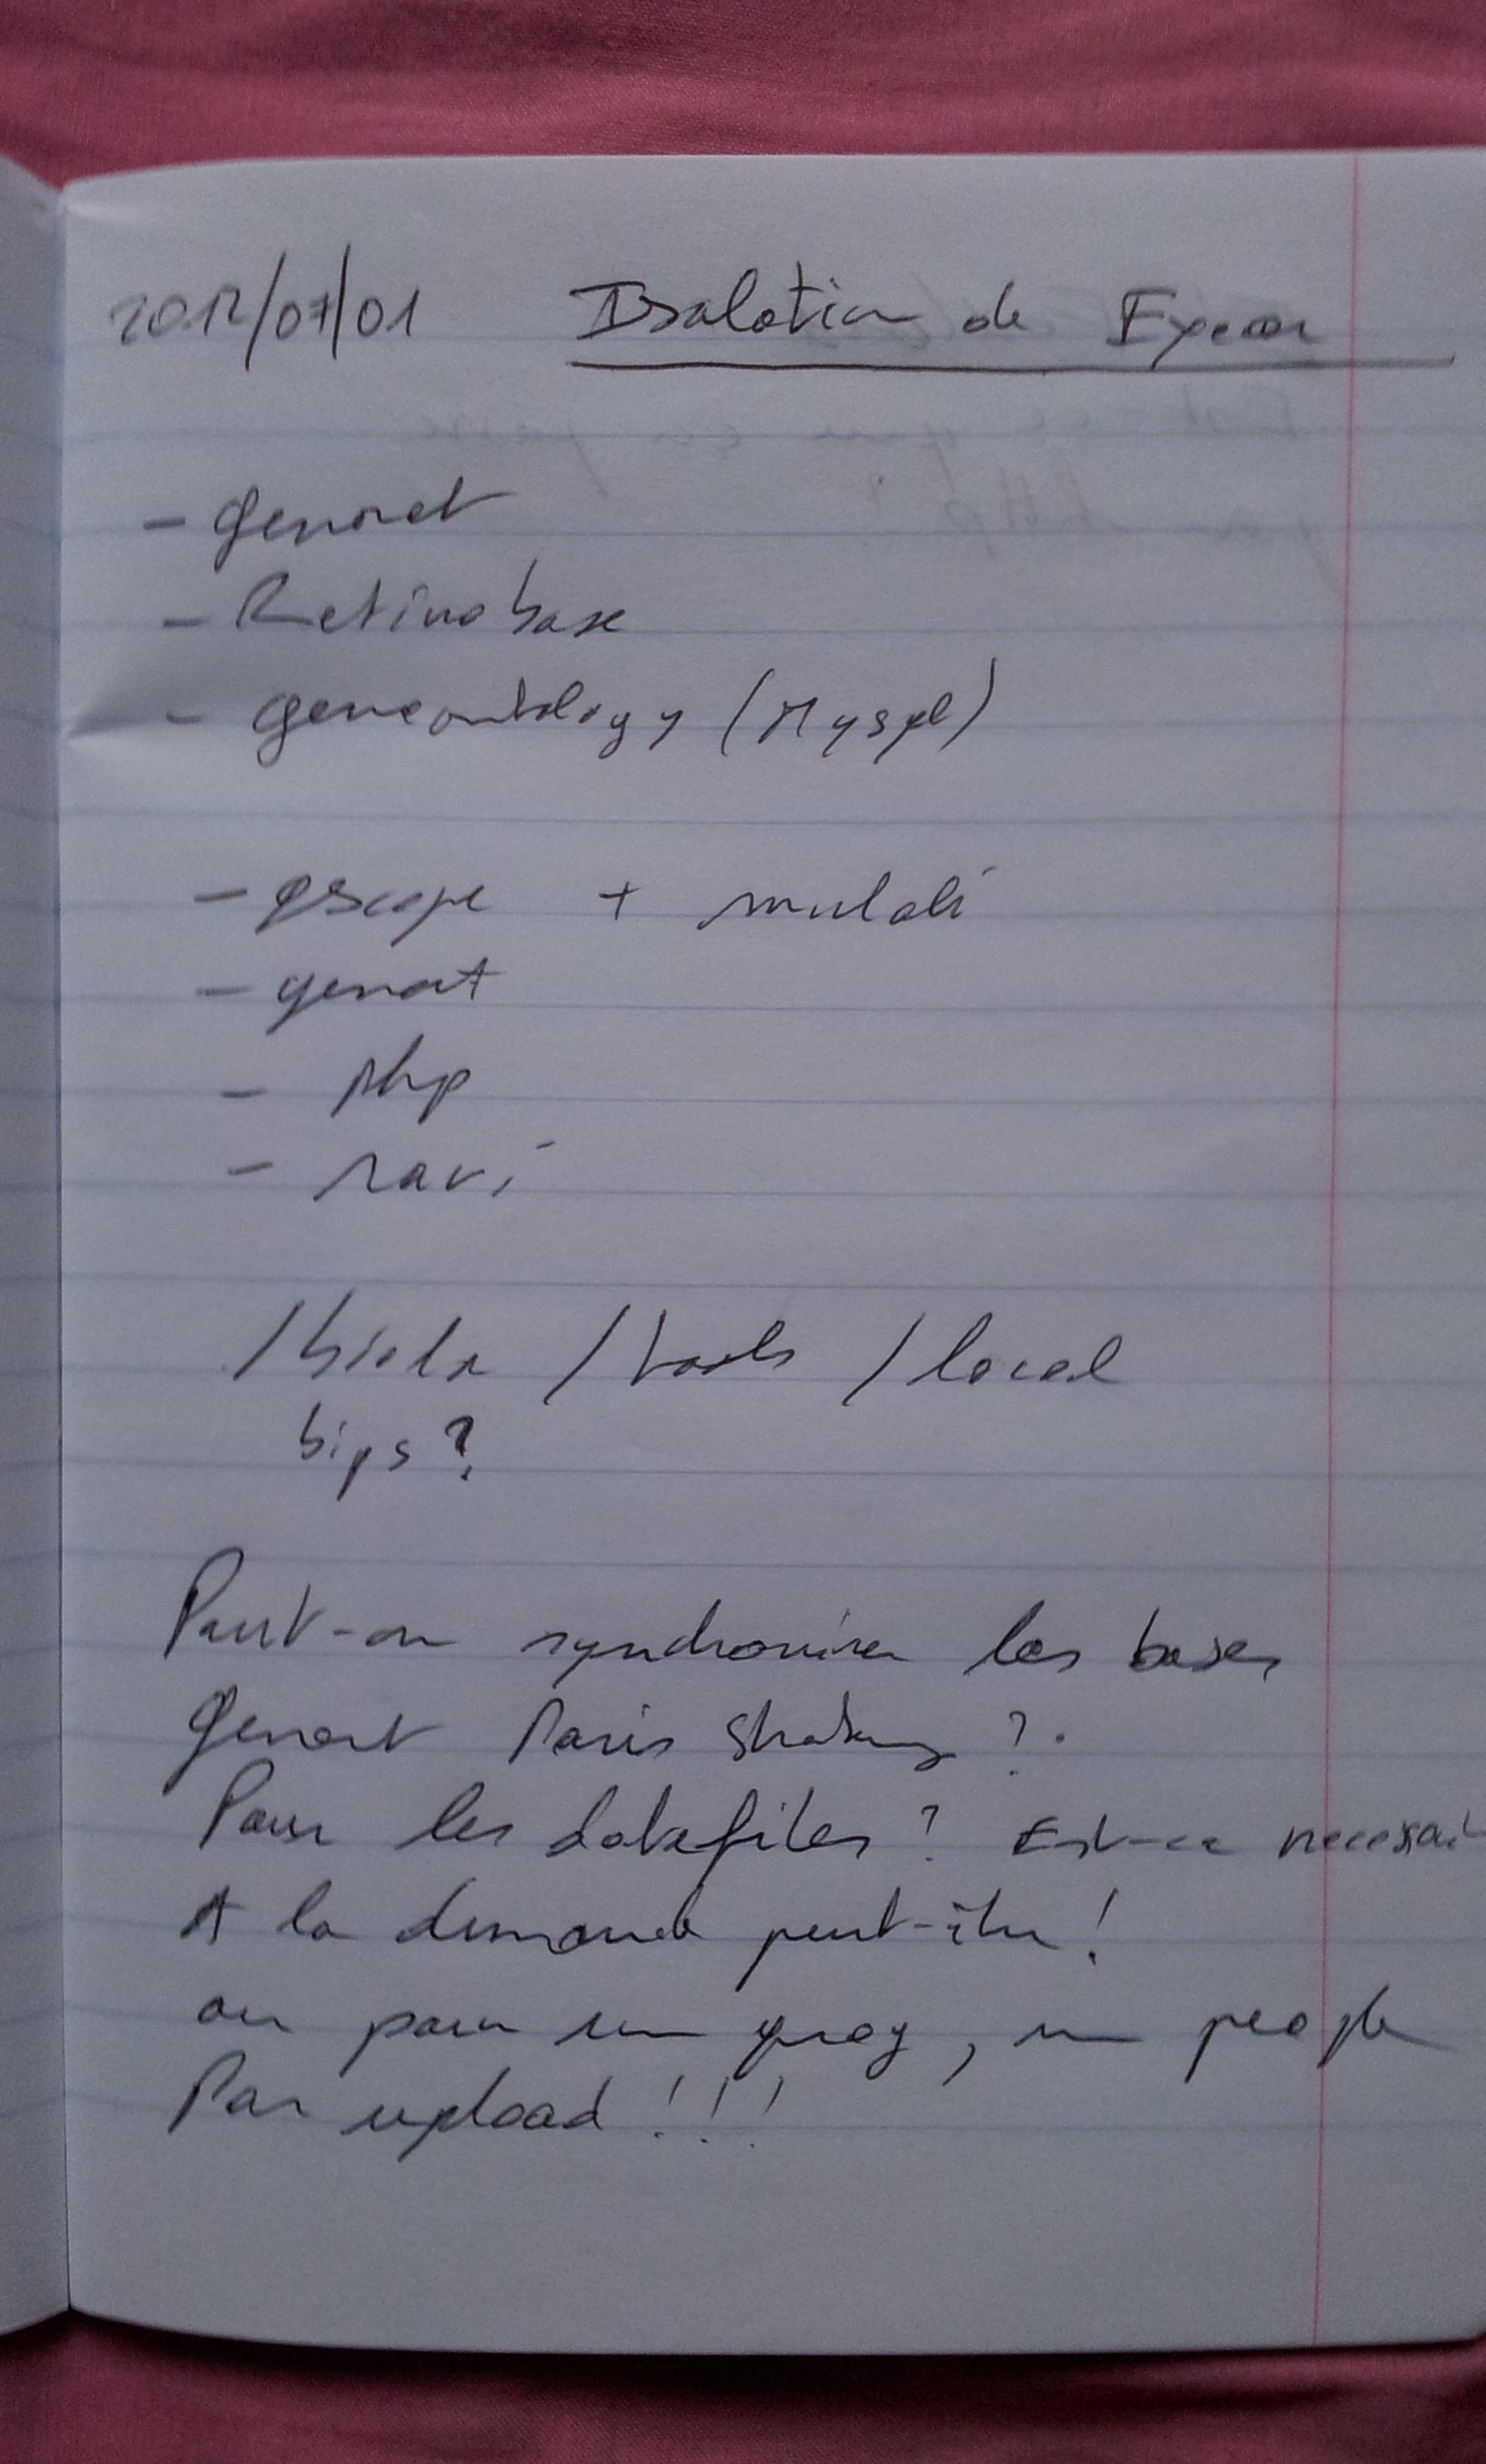 2012/07/01 Isolation de
- genoret
- Retinobase
- geneontology (Mysql)
- gscope + mulali
- genoret
- php
- ravi
/biolo /tools /local
bips?
Peut-on synchroniser les bases
Genoret Paris Strasbourg ?
Pour les datafiles ? Est-ce necessai
A la demande peut-être !
ou pour un prog, un people
Par upload !!!